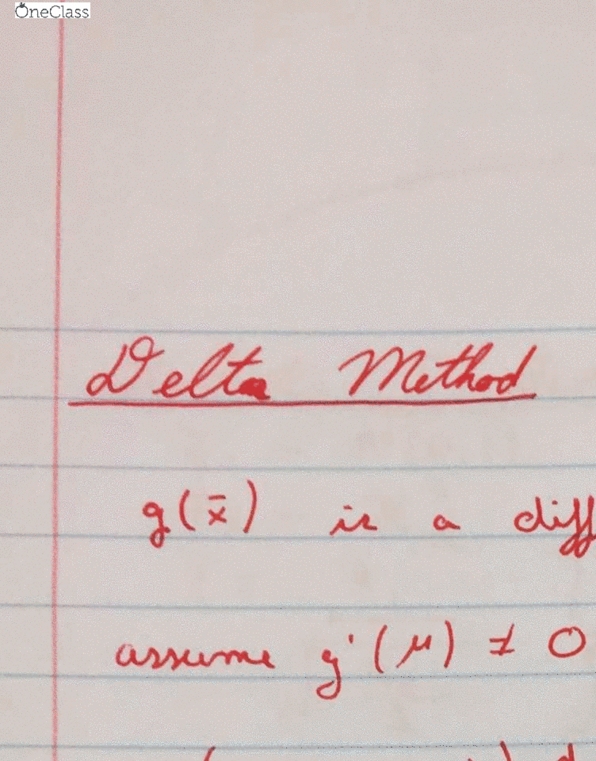 OneClass
Delta Method
g(x̄) is a diff
assume g'(μ) ≠ 0